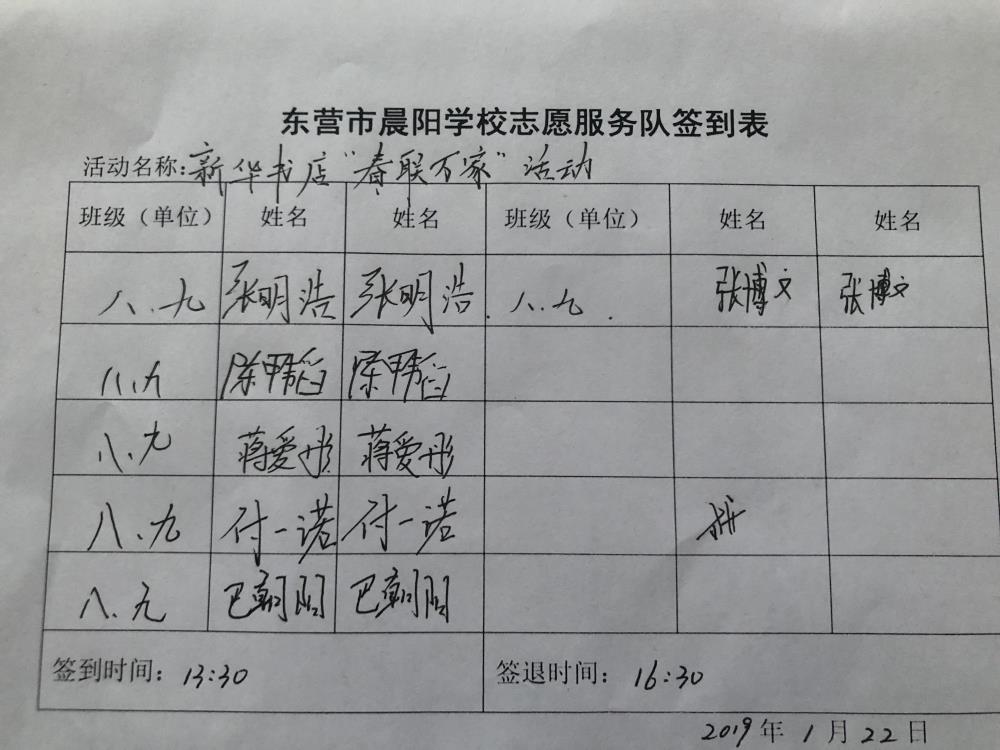 东营市晨阳学校志愿服务队签到表
活动名称:新华书店“春联万家”活动
班级（单位） 姓名 姓名 班级（单位） 姓名 姓名
八.九 张明浩 张明浩 八.九. 张博文 张博文
八.九 陈
八.九 蒋爱彤 蒋爱彤
八.九 付一诺 付一诺
八.九 巴朝阳 巴朝阳
签到时间：13:30 签退时间：16:30
2019年1月22日